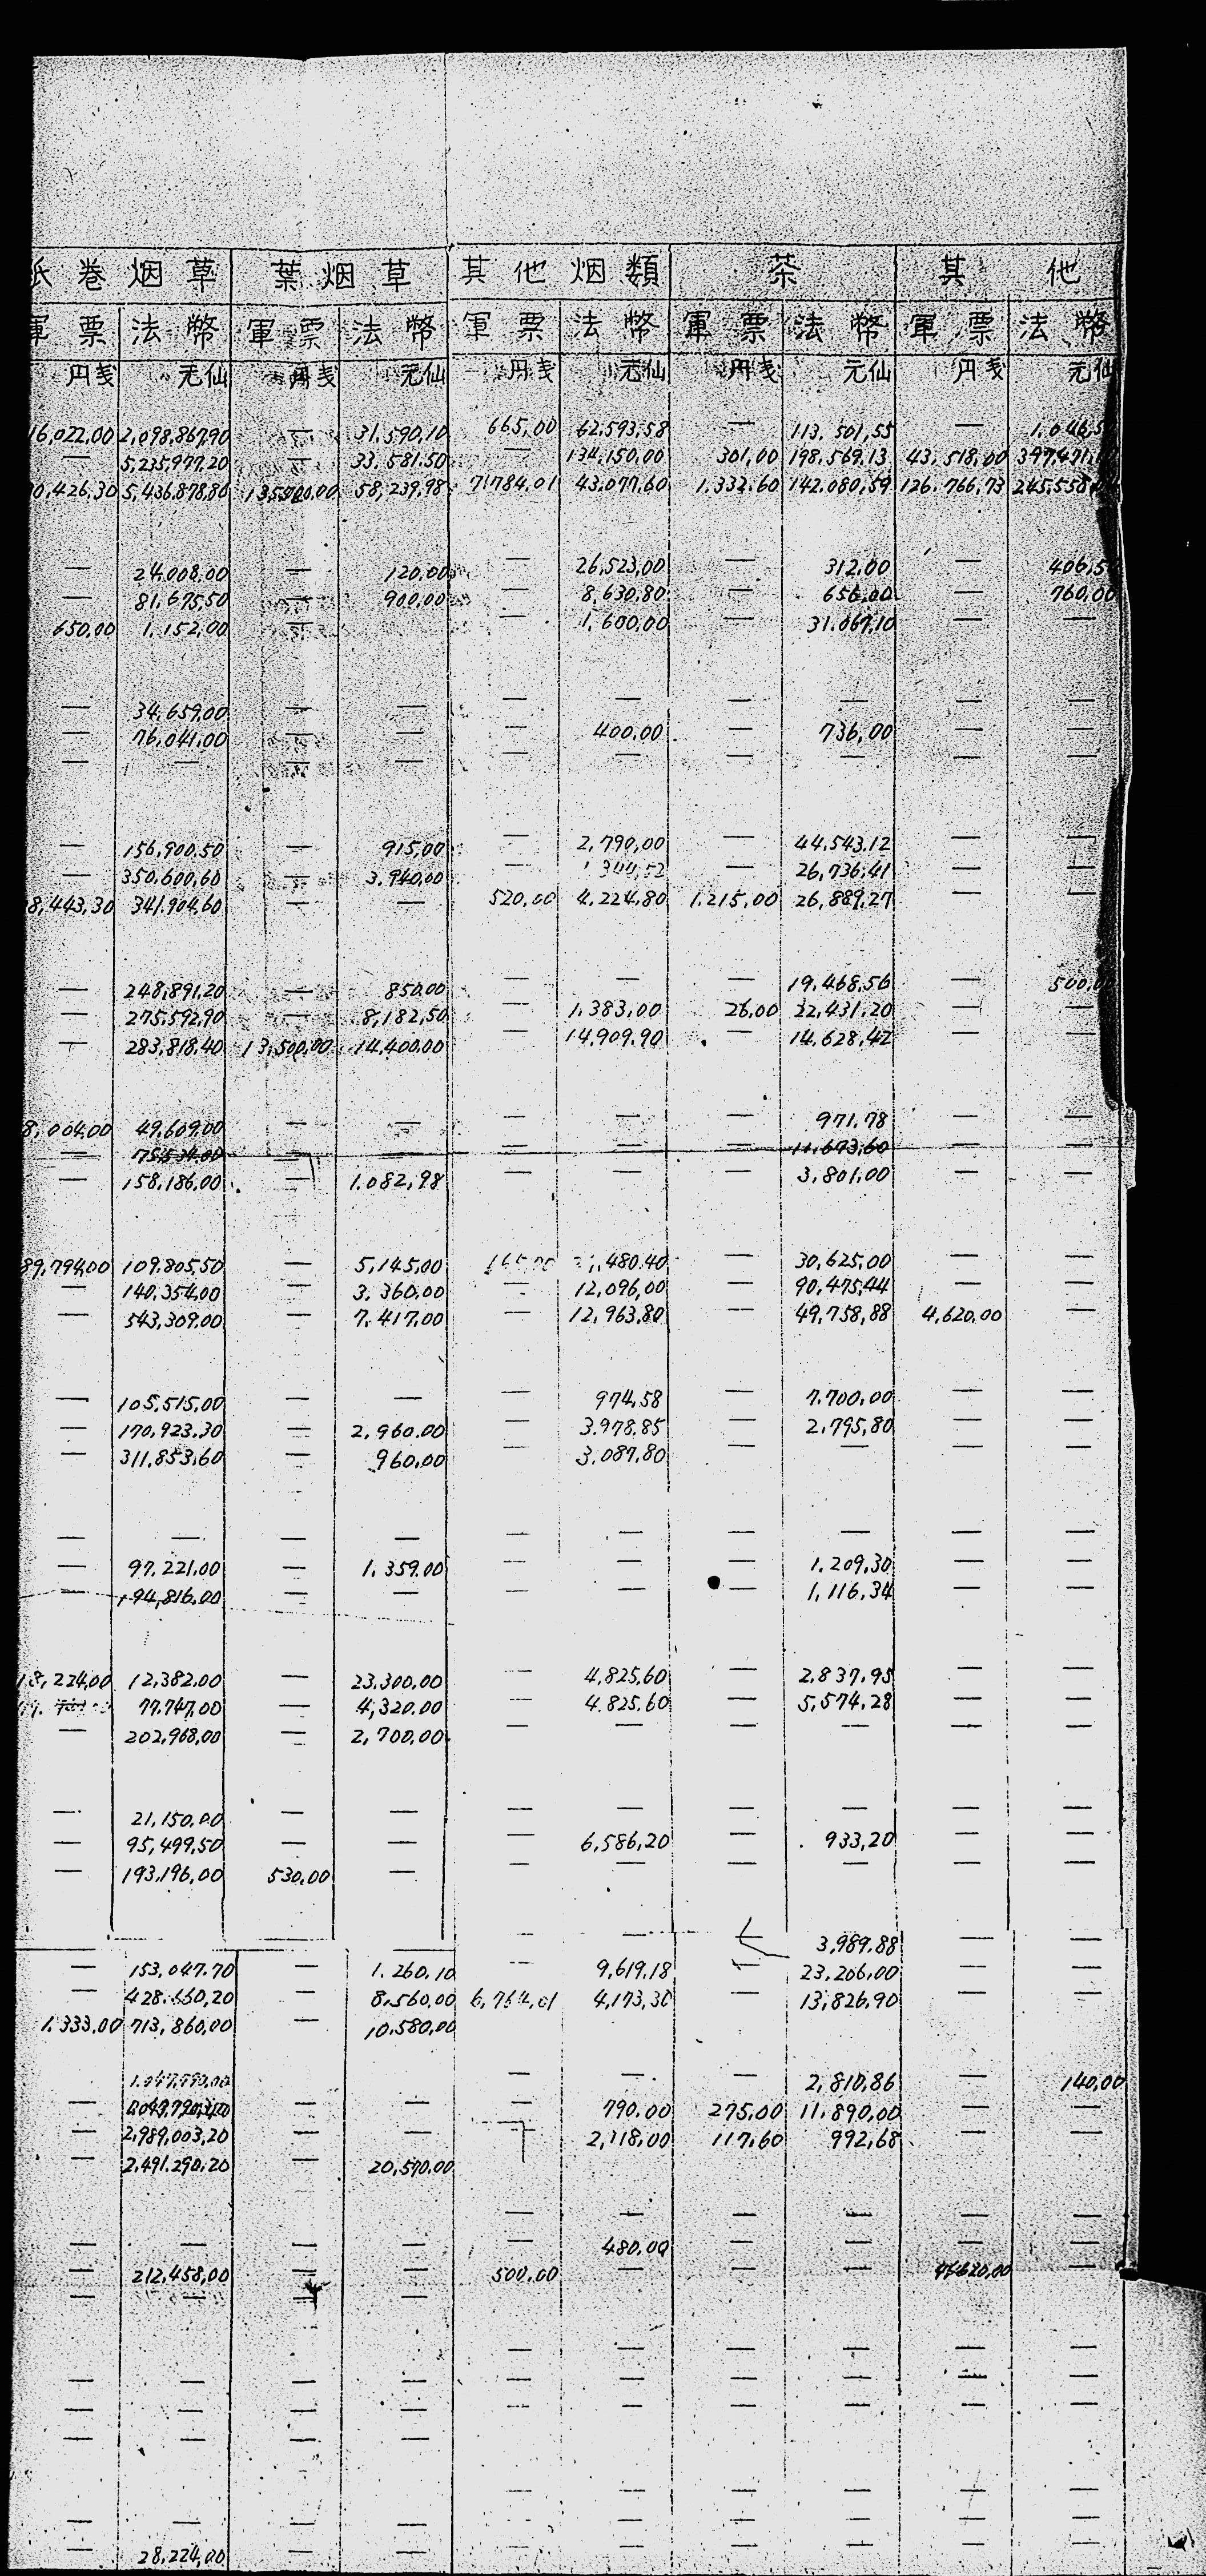 巻 烟 草 葉 烟 草 其 他 烟 類 茶 其 他
軍 票 法 幣 軍 票 法 幣 軍 票 法 幣 軍 票 法 幣 軍 票 法 幣
円 㦮 元仙 円 㦮 元仙 円 㦮 元仙 円 㦮 元仙 円 㦮 元仙
16,022.00 2,098,867.90 — 31,590.10 665.00 62,593.58 — 113,501.55 —
— 5,235,977.20 — 33,581.50 — 134,150.00 301.00 198,569.13 43,518.00
0,426.30 5,436,878.80 58,239.98 71784.01 43,077.60 1,332.60 142,080.59 126,766.73
— 24,008.00 — 120.00 — 26,523.00 — 312.00 —
— 81,675.50 — 900.00 — 8,630.80 — 656.00 — 760.00
650.00 1,152.00 — — 1,600.00 — 31,067.10 — —
— 34,659.00 — — — — — — — —
— 76,041.00 — — — 400.00 — 736.00 — —
— — — — — — — — — —
— 156,900.50 — 915.00 — 2,790.00 — 44,543.12 — —
— 350,600.60 — 3,940.00 — — 26,736.41 — —
8,443.30 341,904.60 — — 520.00 4,224.80 1,215.00 26,889.27 — —
— 248,891.20 — 850.00 — — — 19,468.56 —
— 275,592.90 — 8,182.50 — 1,383.00 26.00 22,431.20 — —
— 283,818.40 13,500.00 14,400.00 — 14,909.90 — 14,628.42 — —
8,004.00 49,609.00 — — — — — 971.78 — —
— — — — — 11,673.60 — —
— 158,186.00 — 1,082.98 — — — 3,801.00 — —
89,794.00 109,805.50 — 5,145.00 — 30,625.00 — —
— 140,354.00 — 3,360.00 — 12,096.00 — 90,475.44 — —
— 543,309.00 — 7,417.00 — 12,963.80 — 49,758.88 4,620.00 —
— 105,515.00 — — — 974.58 — 7,700.00 — —
— 170,923.30 — 2,960.00 — 3,978.85 — 2,795.80 — —
— 311,853.60 — 960.00 — 3,087.80 — — — —
— — — — — — — — — —
— 97,221.00 — 1,359.00 — — — 1,209.30 — —
— 194,816.00 — — — — — 1,116.34 — —
18,224.00 12,382.00 — 23,300.00 — 4,825.60 — 2,837.95 — —
77,747.00 — 4,320.00 — 4,825.60 — 5,574.28 — —
— 202,968.00 — 2,700.00 — — — — — —
— 21,150.00 — — — — — — — —
— 95,499.50 — — — 6,586.20 — 933.20 — —
— 193,196.00 530.00 — — — — — — —
— — — 3,989.88 — —
— 153,047.70 — 1,260.10 — 9,619.18 — 23,206.00 — —
— 428,660.20 — 8,560.00 6,764.01 4,173.30 — 13,826.90 — —
1,333.00 713,860.00 — 10,580.00
— — — 2,810.86 — 140.00
— — — — 790.00 275.00 11,890.00 — —
— 2,989,003.20 — — — 2,118.00 117.60 992.68 — —
— 2,491,290.20 — 20,570.00
— — — — — —
— — — — — 480.00 — — — —
— 212,458.00 — — 500.00 — — — —
— — — —
— — — — — —
— — — — — — — — — —
— — — — — — — — — —
— — — —
— — — — — —
— — — — — — — — — —
— 28,224.00 — — — — — — — —